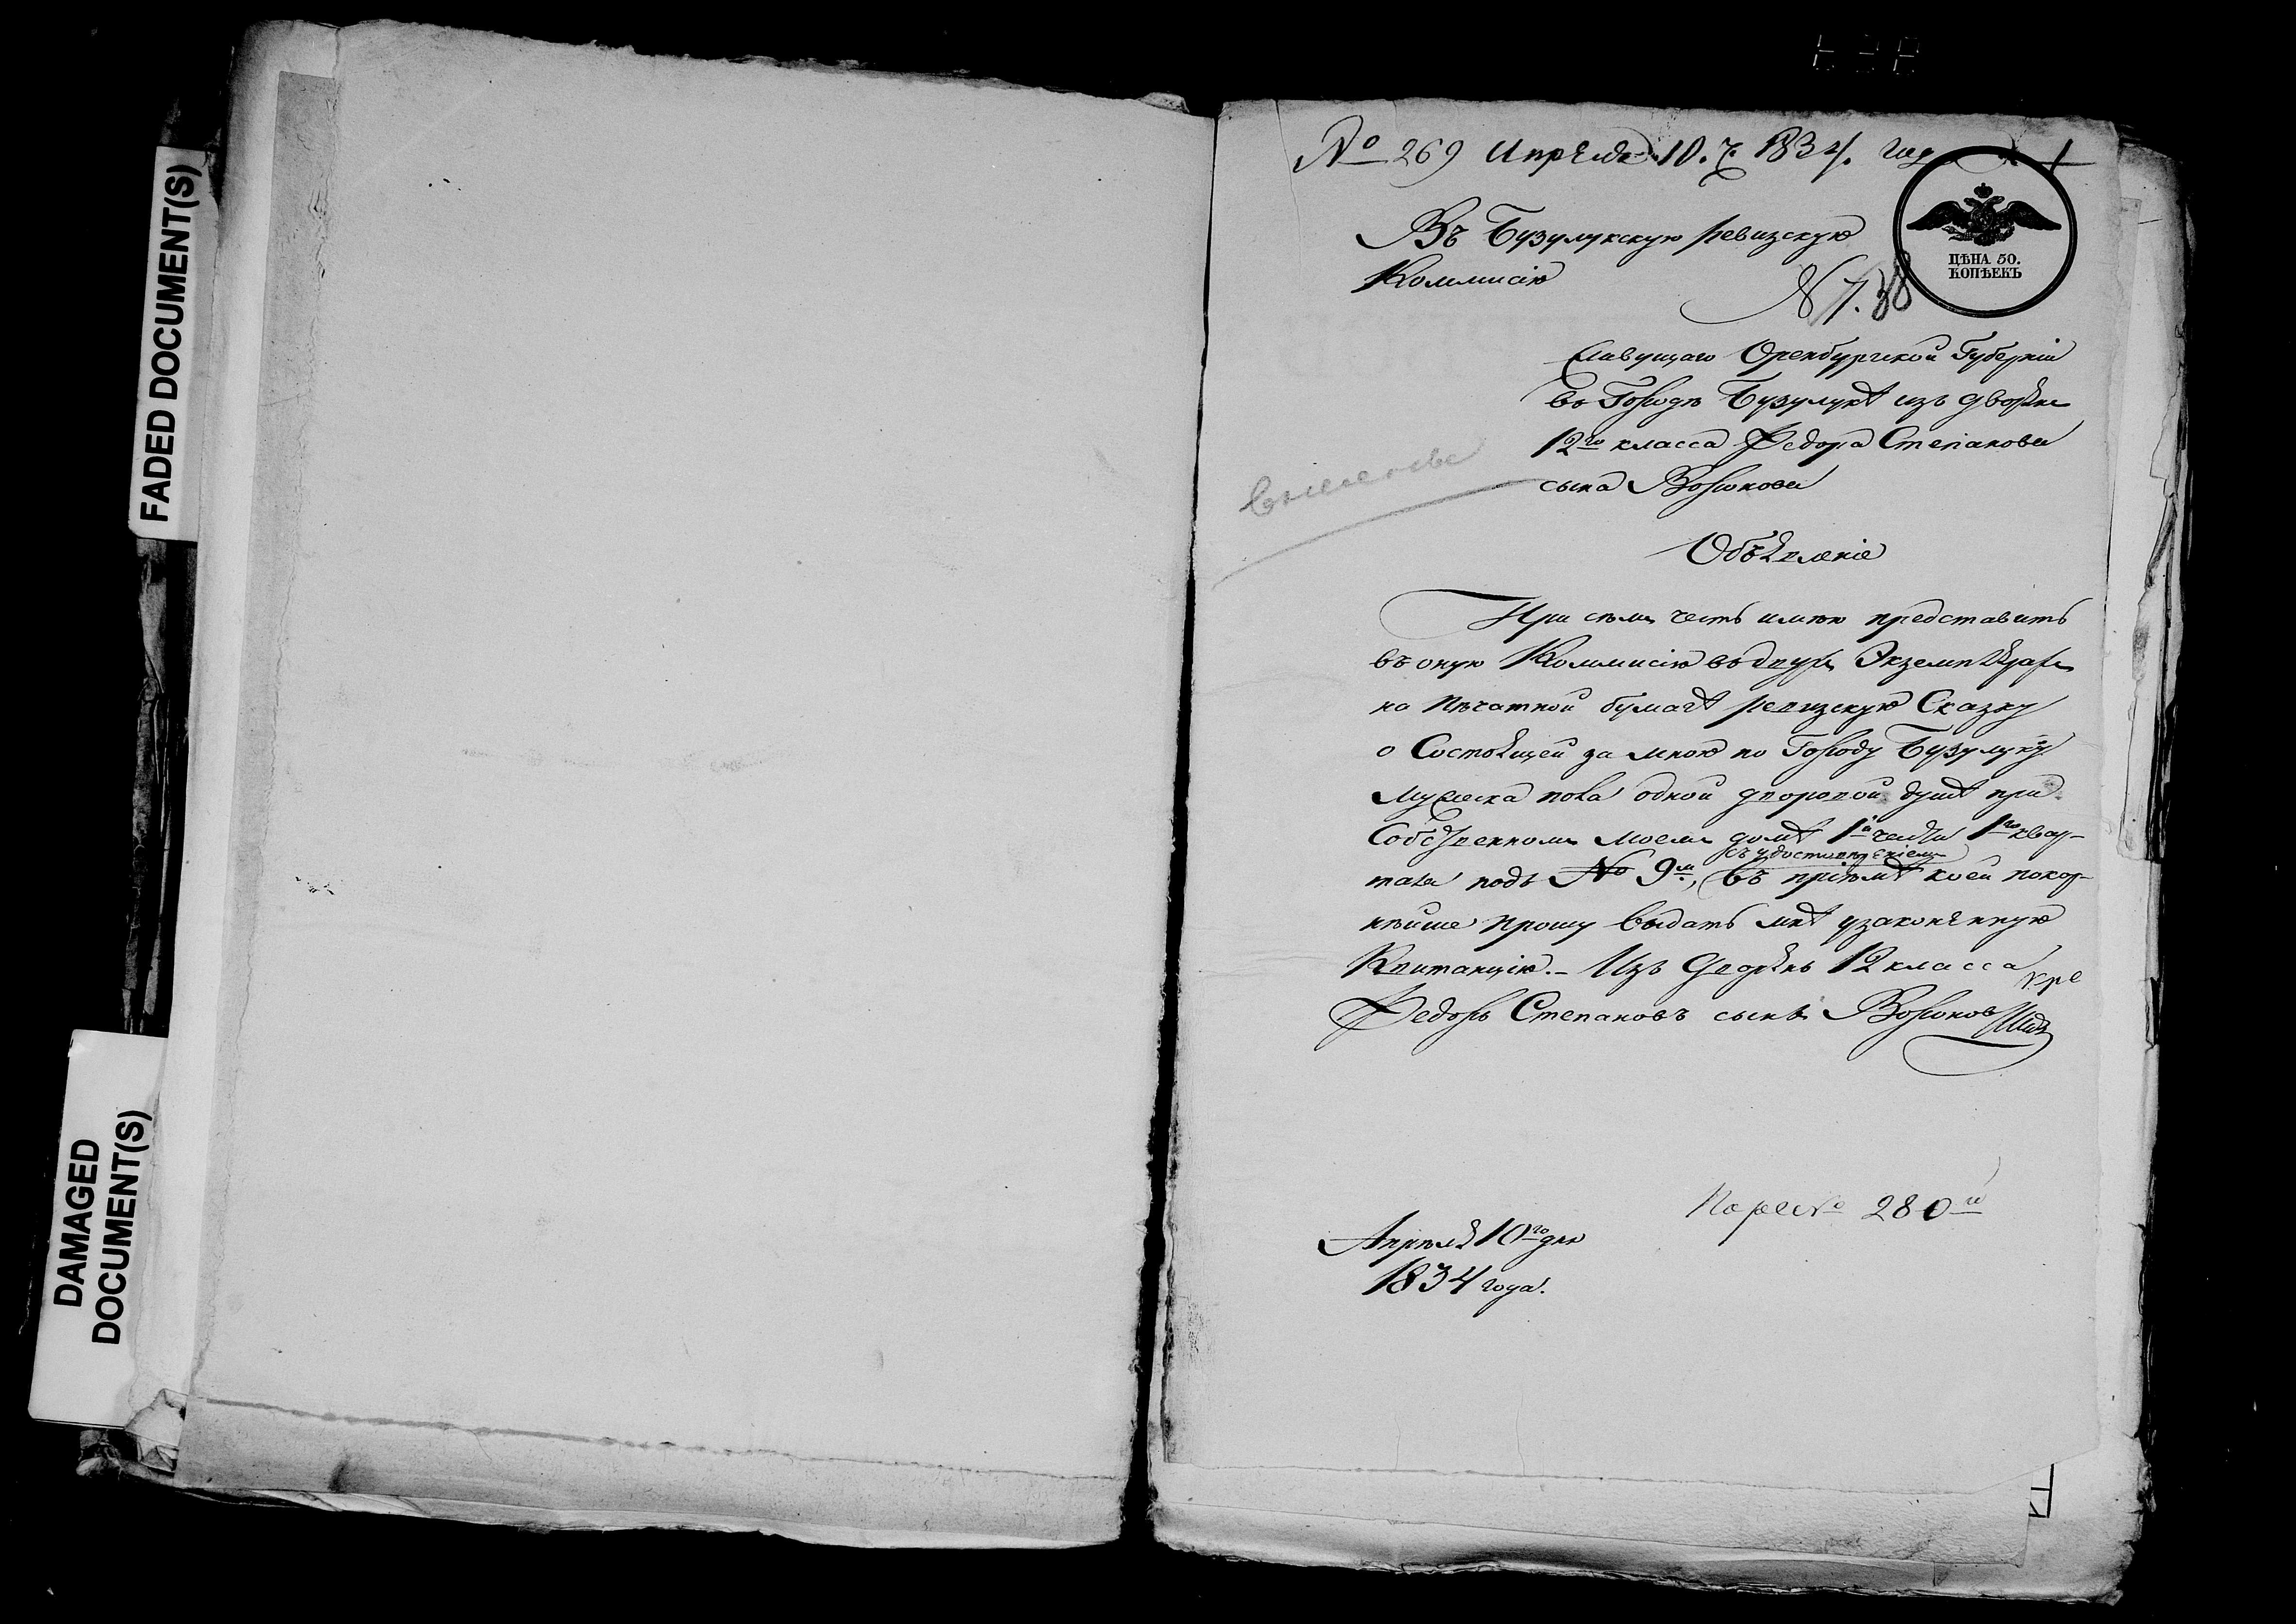 FADED DOCUMENT(S)
DAMAGED
DOCUMENT(S)
№ 269 Апреля 10. ч. 1834. год
1
Въ Бузулукскую ревизскую
Коммисію
ЦѢНА 50.
КОПѢЕКЪ
N
Живущаго Оренбургской Губерніи
въ Городѣ Бузулукѣ изъ дворян
12го класса Федора Степанова
сына Воронова
Объявленіе
При семъ честь имѣю представить
въ оную Коммисію въ двухъ Экземплярахъ
на Печатной бумагѣ ревизскую Сказку
о Состоящей за мною по Городу Бузулуку
мужеска пола одной дворовой душѣ при
Собственномъ моемъ домѣ 1й части 1го квар-
съ удостовереніемъ
тала подъ № 9м, въ пріемѣ коей покор-
нейше прошу выдать мнѣ узаконенную
Квитанцію. - Изъ Дворянъ 12 класса
Федоръ Степановъ сынъ Воронов
280й
Апреля 10го дня
1834 года.